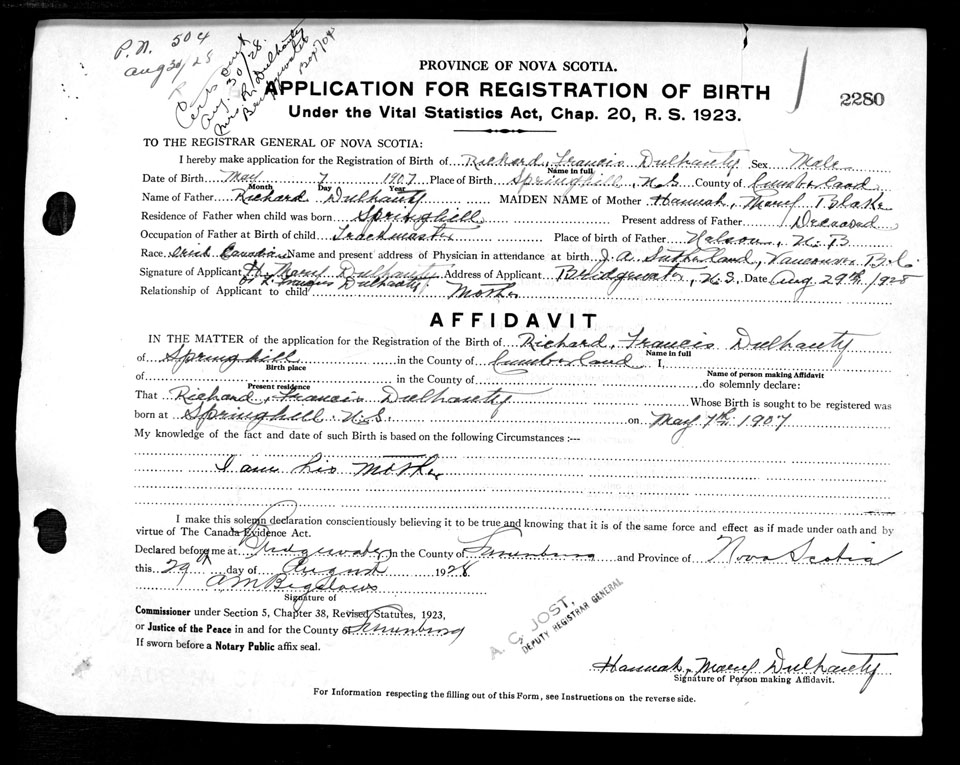 P.N. 504
Aug 30/28
Cert. Out
Aug. 30/28.
Mrs R. Dulhanty
Bridgewater
Box 704
PROVINCE OF NOVA SCOTIA.
APPLICATION FOR REGISTRATION OF BIRTH
2280
Under the Vital Statistics Act, Chap. 20, R. S. 1923.
TO THE REGISTRAR GENERAL OF NOVA SCOTIA:
I hereby make application for the Registration of Birth of Richard, Francis Dulhanty Sex Male
Name in full
Date of Birth May 7 1907 Place of Birth Springhill, N.S County of Cumberland
Month Day Year
Name of Father Richard Dulhanty MAIDEN NAME of Mother Hannah, Mary Blake
Residence of Father when child was born Springhill Present address of Father Deceased
Occupation of Father at Birth of child Trackmaster Place of birth of Father Nelson, N.B
Race Irish Canadian Name and present address of Physician in attendance at birth J. A. Sutherland, Vancouver B.C.
Signature of Applicant H. Mary Dulhanty Address of Applicant Bridgewater, N.S, Date Aug 29th, 1928
or R. Francis Dulhanty
Relationship of Applicant to child Mother
AFFIDAVIT
IN THE MATTER of the application for the Registration of the Birth of Richard, Francis Dulhanty
Name in full
of Springhill in the County of Cumberland I,
Birth place Name of person making Affidavit
of in the County of do solemnly declare:
Present residence
That Richard, Francis Dulhanty Whose Birth is sought to be registered was
born at Springhill N.S. on May 7th, 1907
My knowledge of the fact and date of such Birth is based on the following Circumstances :--
I am his Mother
I make this solemn declaration conscientiously believing it to be true and knowing that it is of the same force and effect as if made under oath and by
virtue of The Canada Evidence Act.
Declared before me at Bridgewater in the County of Lunenburg and Province of Nova Scotia
this 29th day of August 1928.
A M Bigelow
Signature of
Commissioner under Section 5, Chapter 38, Revised Statutes, 1923,
or Justice of the Peace in and for the County of Lunenburg
If sworn before a Notary Public affix seal.
A. C. JOST,
DEPUTY REGISTRAR GENERAL
Hannah, Mary Dulhanty
Signature of Person making Affidavit.
For Information respecting the filling out of this Form, see Instructions on the reverse side.